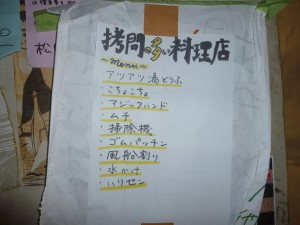 拷問の多い料理店
~menu~
・アツアツ湯どうふ
・こちょこちょ
・マジックハンド
・ムチ
・掃除機
・ゴムパッチン
・風船割り
・水かけ
・ハリセン
松